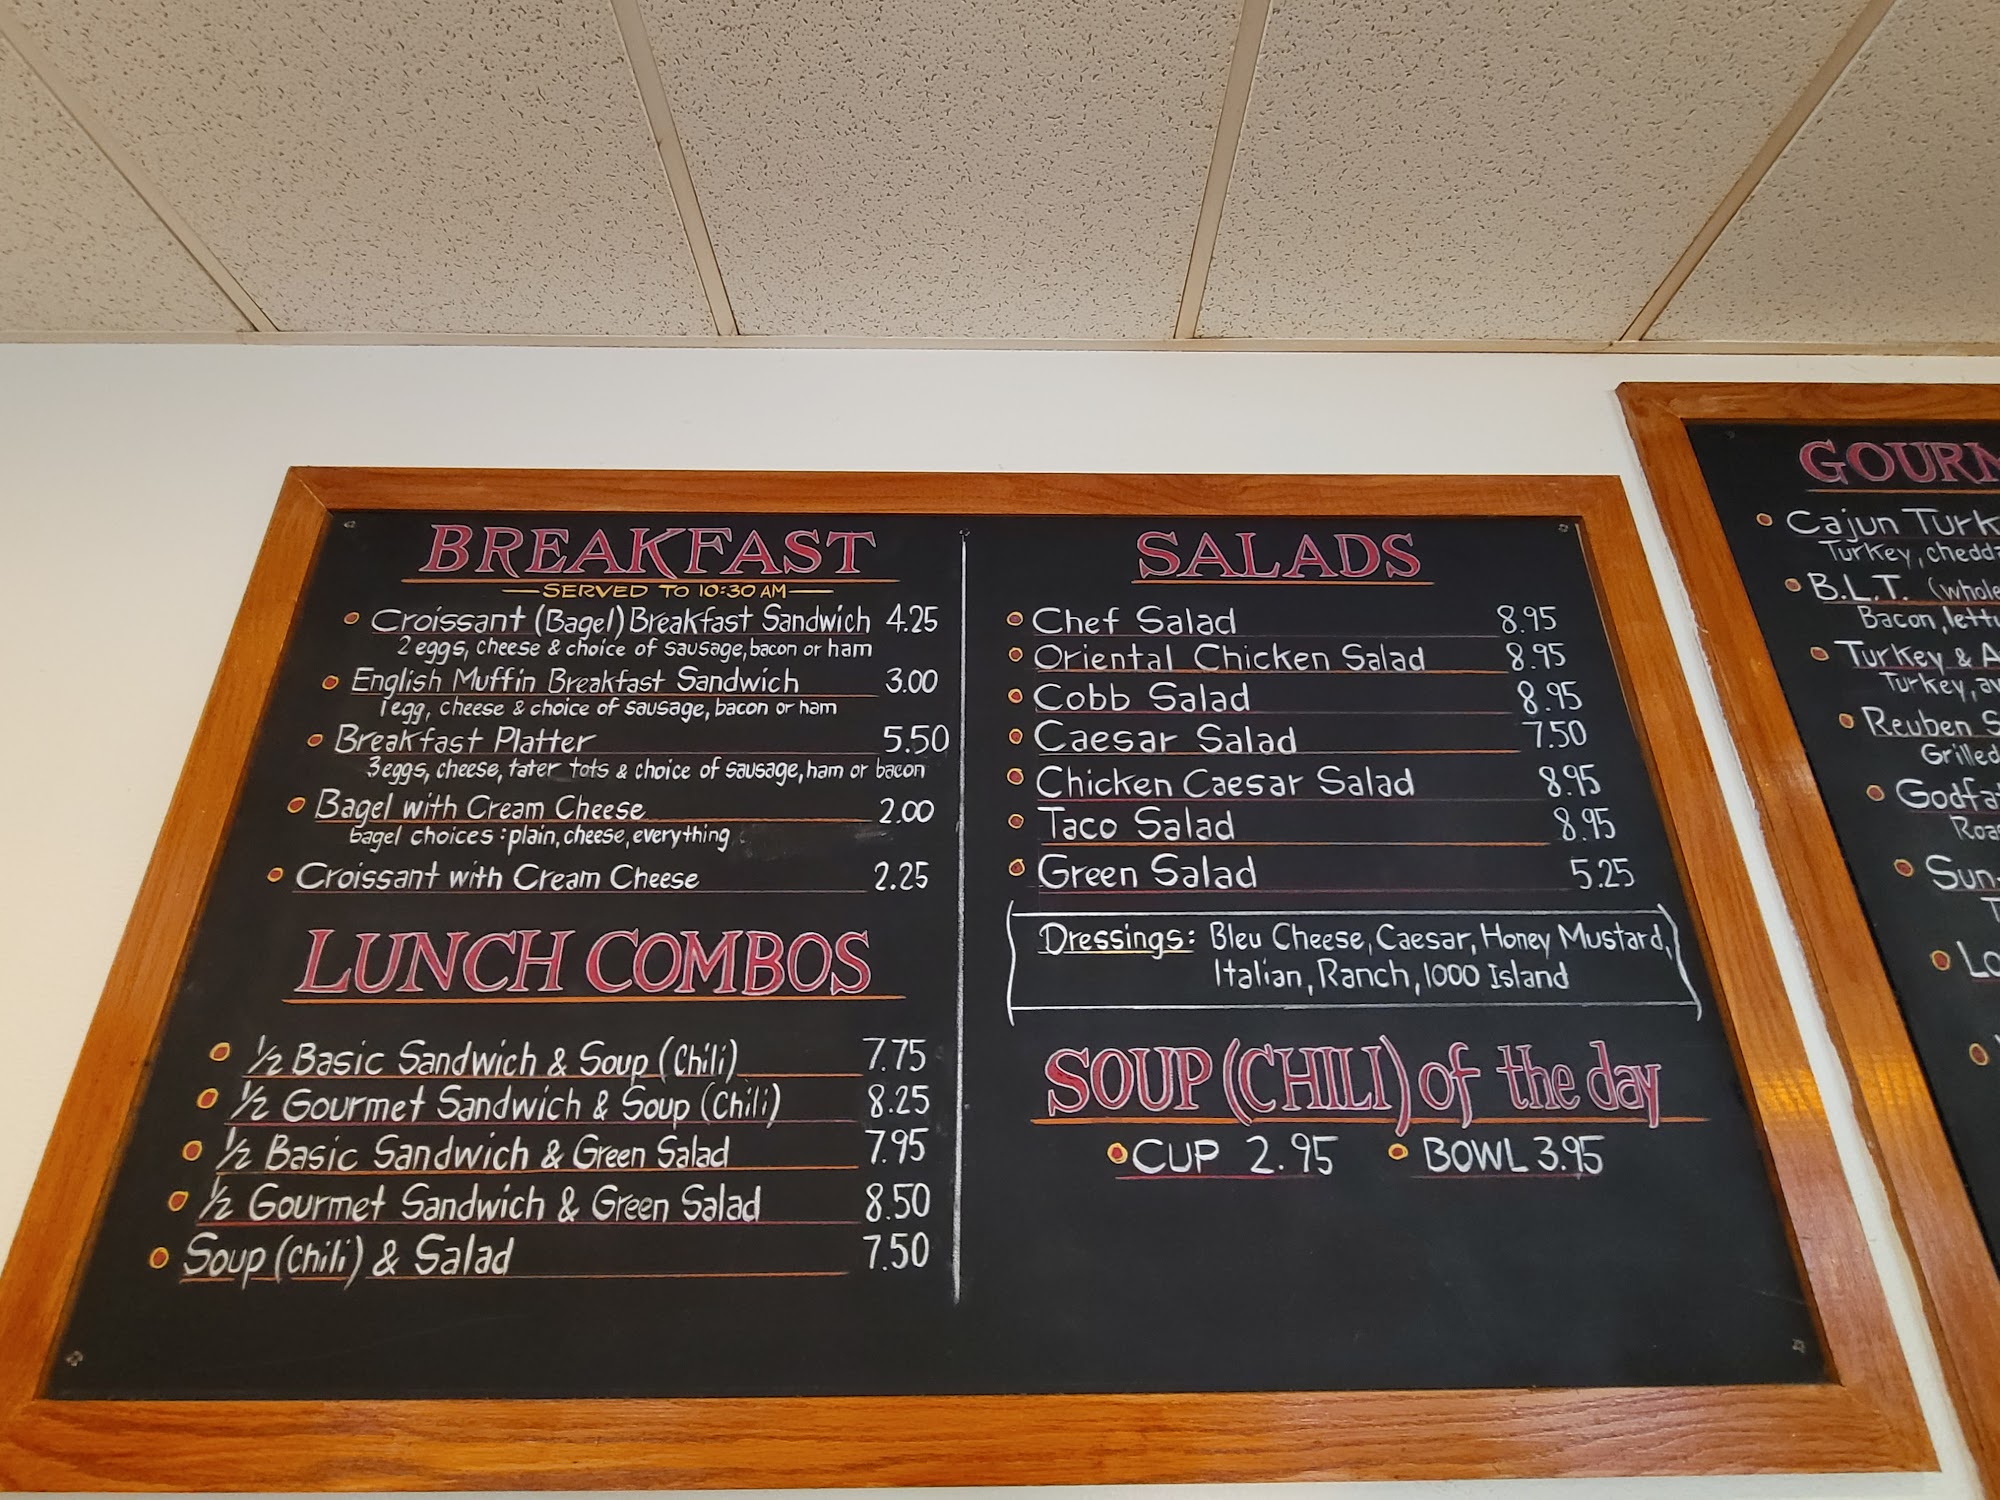 BREAKFAST
SERVED TO 10:30 AM
Croissant (Bagel) Breakfast Sandwich 4.25
2 eggs, cheese & choice of sausage, bacon or ham
English Muffin Breakfast Sandwich 3.00
1 egg, cheese & choice of sausage, bacon or ham
Breakfast Platter 5.50
3 eggs, cheese, tater tots & choice of sausage, ham or bacon
Bagel with Cream Cheese 2.00
bagel choices: plain, cheese, everything
Croissant with Cream Cheese 2.25
LUNCH COMBOS
½ Basic Sandwich & Soup (Chili) 7.75
½ Gourmet Sandwich & Soup (Chili) 8.25
½ Basic Sandwich & Green Salad 7.95
½ Gourmet Sandwich & Green Salad 8.50
Soup (Chili) & Salad 7.50
SALADS
Chef Salad 8.95
Oriental Chicken Salad 8.95
Cobb Salad 8.95
Caesar Salad 7.50
Chicken Caesar Salad 8.95
Taco Salad 8.95
Green Salad 5.25
Dressings: Bleu Cheese, Caesar, Honey Mustard,
Italian, Ranch, 1000 Island
SOUP (CHILI) of the day
CUP 2.95 BOWL 3.95
Cajun
Turkey,
B.L.T.
Bacon,
Turkey &
Turkey,
Reuben
Grilled